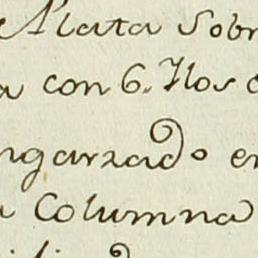 Plata sobr
a con 6. Ilos
ngarzado en
a Columna